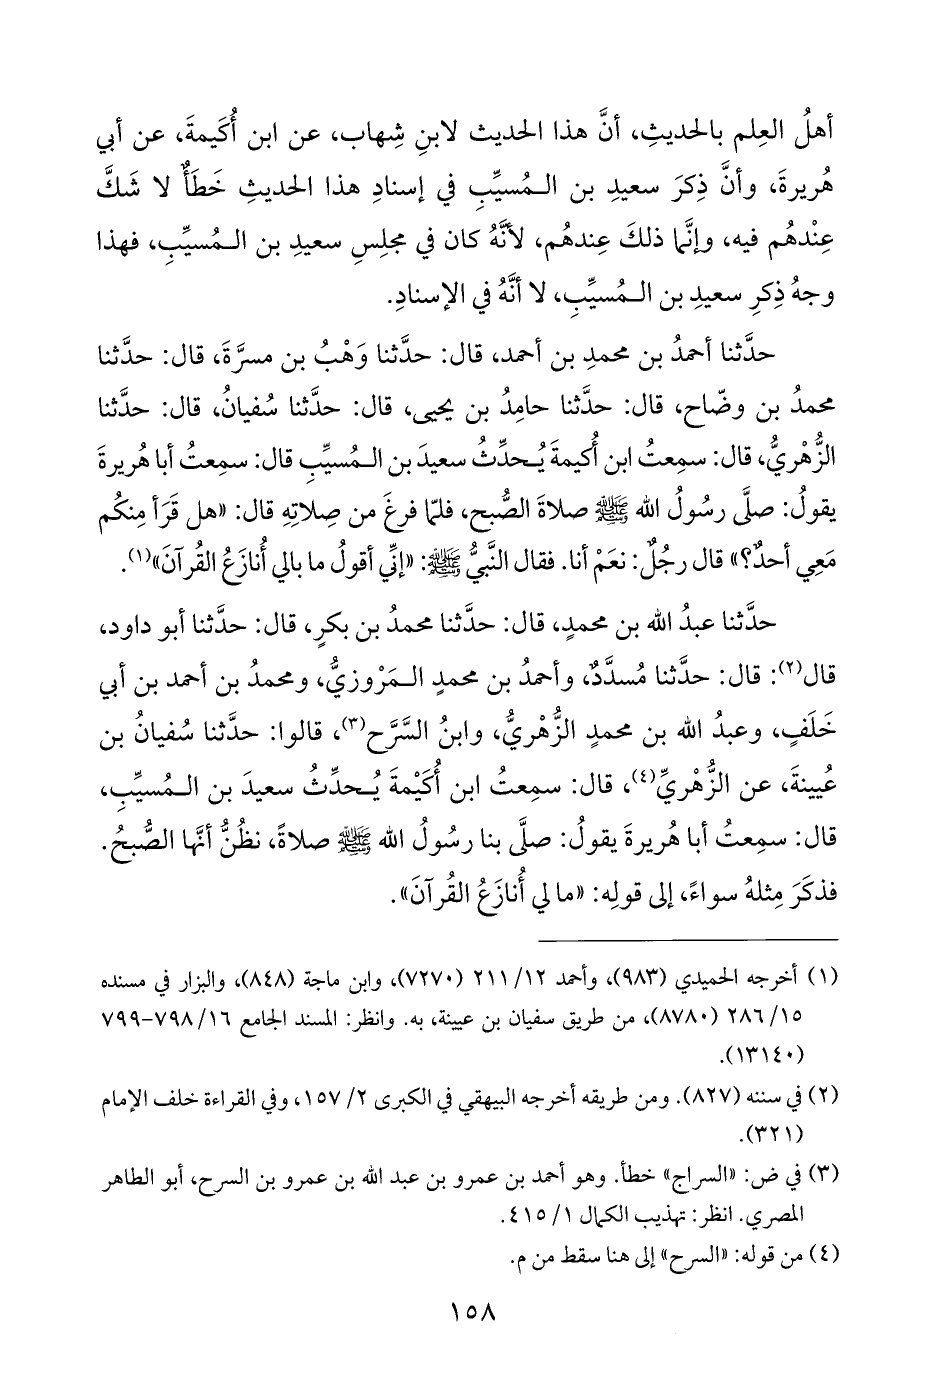 أهلُ العِلم بالحديثِ، أنَّ هذا الحديث لابنِ شِهاب، عن ابن أُكَيمةَ، عن أبي
هُريرةَ، وأنَّ ذِكرَ سعيدِ بن الـمُسيِّبِ في إسنادِ هذا الحديثِ خَطَأٌ لا شَكَّ
عِنْدهُم فيه، وإنَّما ذلكَ عِندهُم، لأنَّهُ كان في مجلِسِ سعيدِ بن الـمُسيِّبِ، فهذا
وجهُ ذِكرِ سعيدِ بن الـمُسيِّبِ، لا أنَّهُ في الإسنادِ.
حدَّثنا أحمدُ بن محمدِ بن أحمد، قال: حدَّثنا وَهْبُ بن مسرَّةَ، قال: حدَّثنا
محمدُ بن وضّاح، قال: حدَّثنا حامِدُ بن يحيى، قال: حدَّثنا سُفيانُ، قال: حدَّثنا
الزُّهْريُّ، قال: سمِعتُ ابن أُكيمةَ يُـحدِّثُ سعيدَ بن الـمُسيِّبِ قال: سمِعتُ أبا هُريرةَ
يقولُ: صلَّى رسُولُ الله ﷺ صلاةَ الصُّبح، فلمّا فرغَ من صِلاتِهِ قال: «هل قَرَأ مِنكُم
مَعِي أحدٌ؟» قال رجُلٌ: نعَمْ أنا. فقال النَّبيُّ ﷺ: «إنِّي أقولُ ما بالي أُنازَعُ القُرآنَ»(١).
حدَّثنا عبدُ الله بن محمدٍ، قال: حدَّثنا محمدُ بن بكرٍ، قال: حدَّثنا أبو داود،
قال(٢): قال: حدَّثنا مُسدَّدٌ، وأحمدُ بن محمدٍ الـمَرْوزيُّ، ومحمدُ بن أحمد بن أبي
خَلَفٍ، وعبدُ الله بن محمدٍ الزُّهْريُّ، وابنُ السَّرَّح(٣)، قالوا: حدَّثنا سُفيانُ بن
عُيينةَ، عن الزُّهْريِّ(٤)، قال: سمِعتُ ابن أُكَيْمةَ يُـحدِّثُ سعيدَ بن الـمُسيِّبِ،
قال: سمِعتُ أبا هُريرةَ يقولُ: صلَّى بنا رسُولُ الله ﷺ صلاةً، نظُنُّ أنَّها الصُّبحُ.
فذكَرَ مِثلهُ سواءً، إلى قولِه: «ما لي أُنازَعُ القُرآنَ».
(١) أخرجه الحميدي (٩٨٣)، وأحمد ١٢/ ٢١١ (٧٢٧٠)، وابن ماجة (٨٤٨)، والبزار في مسنده
١٥/ ٢٨٦ (٨٧٨٠)، من طريق سفيان بن عيينة، به. وانظر: المسند الجامع ١٦/ ٧٩٨-٧٩٩
(١٣١٤٠).
(٢) في سننه (٨٢٧). ومن طريقه أخرجه البيهقي في الكبرى ٢/ ١٥٧، وفي القراءة خلف الإمام
(٣٢١).
(٣) في ض: «السراج» خطأ. وهو أحمد بن عمرو بن عبد الله بن عمرو بن السرح، أبو الطاهر
المصري. انظر: تهذيب الكمال ١/ ٤١٥.
(٤) من قوله: «السرح» إلى هنا سقط من م.
١٥٨